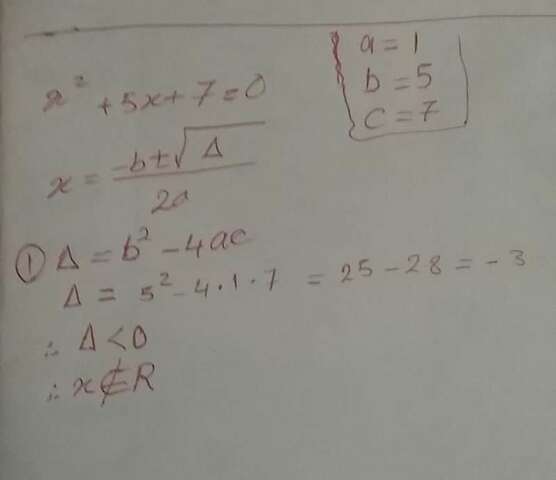 x² + 5x + 7 = 0
a = 1
b = 5
c = 7
x = (-b ± √Δ) / 2a
① Δ = b² - 4ac
Δ = 5² - 4 · 1 · 7 = 25 - 28 = - 3
∴ Δ < 0
∴ x ∉ R